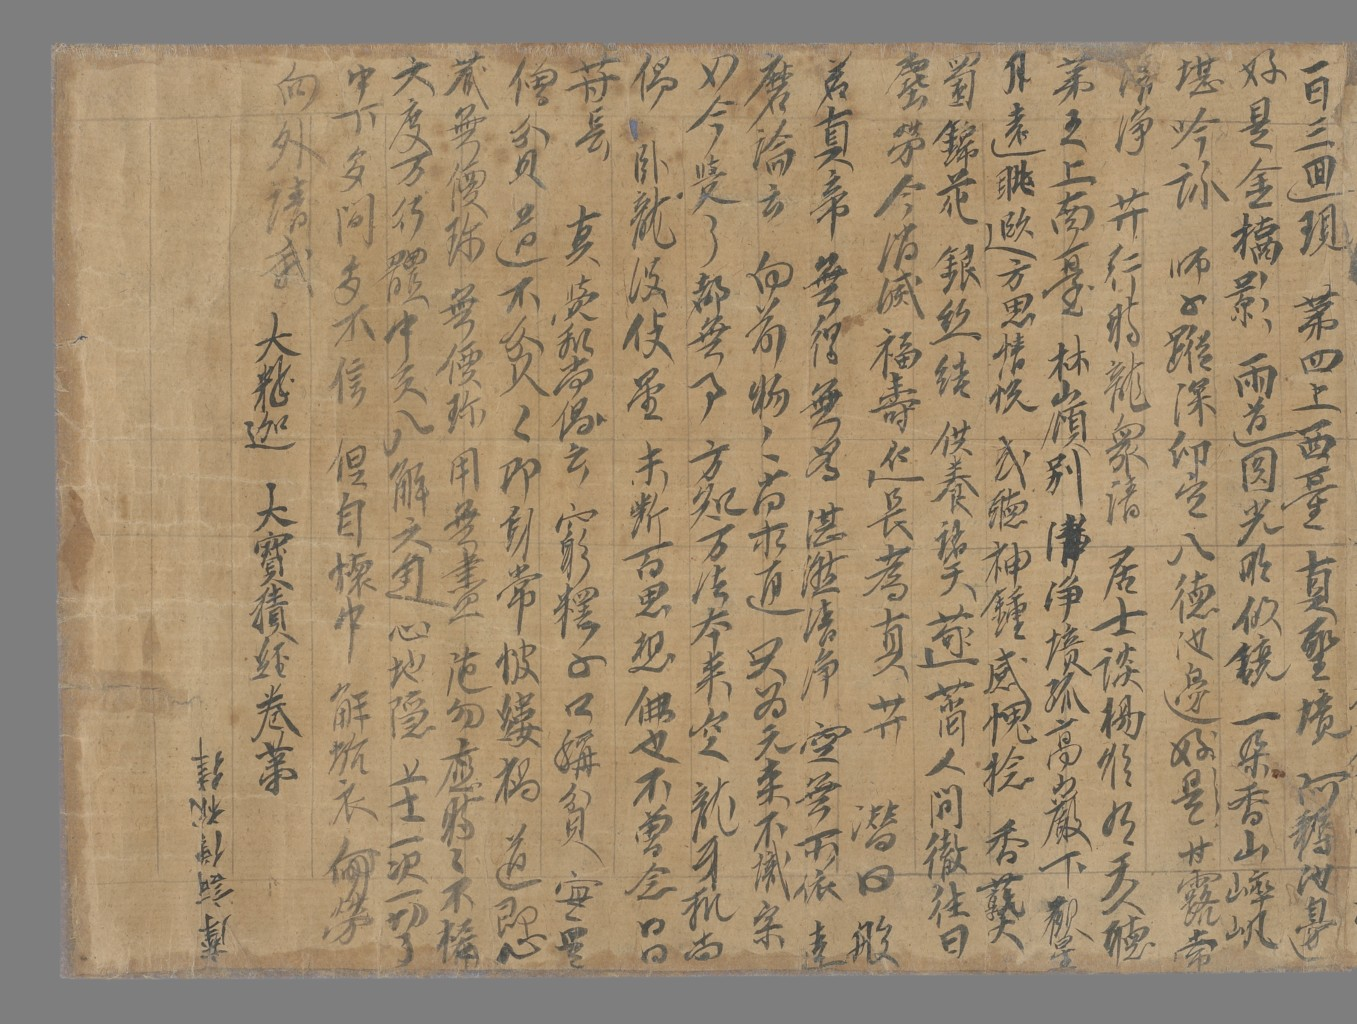 一百三迴現 第四上西臺 真聖境 阿耨池邊
好是金橋影 兩道圓光明似鏡 一朵香山崒屼
堪吟詠 師子蹤深印定 八德池邊好是甘露常
清淨 菩薩行時龍眾請 居士談揚唯有天人聽
第五上南臺 林山嶺別 清淨境孤高 巖下觀星
月 遠眺遐方思情悅 或聽神鐘感愧捻香爇
蜀錦花 銀絲結 供養諸天菩薩 人間徹往日
塵勞今消滅 福壽延長 為真菩薩 潛曰般
若真帝 無得無為 湛然清淨 空無所依 達
磨論云 向前物物苦求道 只為元來不識宗
如今覺了都無事 方知万法本來空 龍牙和尚
偈 臥龍沒伎量 未斷百思想 佛也不曾念 日日
菩長 真覺和尚偈云 窮釋子口稱貧 實是
僧貧道不貧 貧即身常披縷褐 道即心
藏無價珍 無價珍 用無盡 應物應時時不悋
六度万行體中交 八解六通心地隱 上士一决一切了
中下多聞多不信 但自懷中解垢衣 何勞
向外請戒
大釋迦 大寶積經卷第